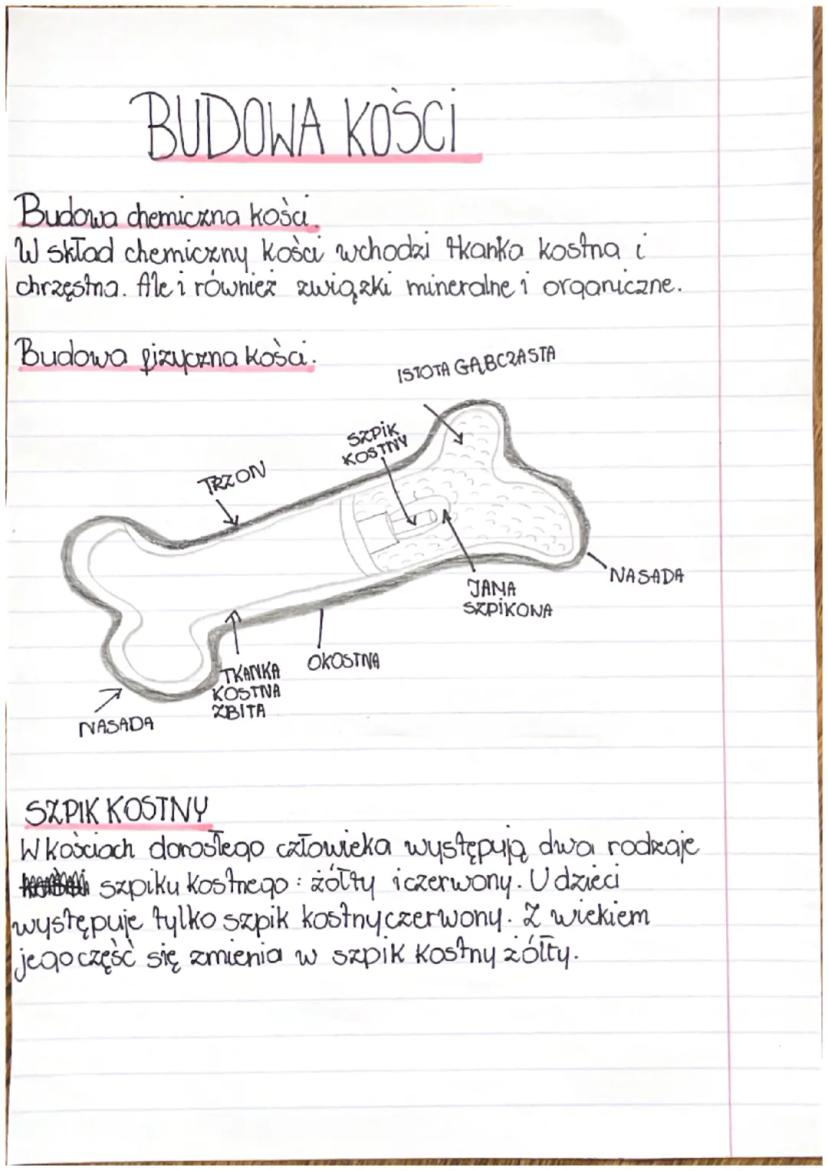 BUDOWA KOŚCI
Budowa chemiczna kości.
W skład chemiczny kości wchodzi tkanka kostna i
chrzęstna. Ale i również związki mineralne i organiczne.
Budowa fizyczna kości.
ISTOTA GĄBCZASTA
SZPIK
KOSTNY
TRZON
NASADA
JAMA
SZPIKOWA
OKOSTNA
TKANKA
KOSTNA
ZBITA
NASADA
SZPIK KOSTNY
W kościach dorosłego człowieka występują dwa rodzaje
szpiku kostnego: żółty i czerwony. U dzieci
występuje tylko szpik kostny czerwony. Z wiekiem
jego część się zmienia w szpik kostny żółty.